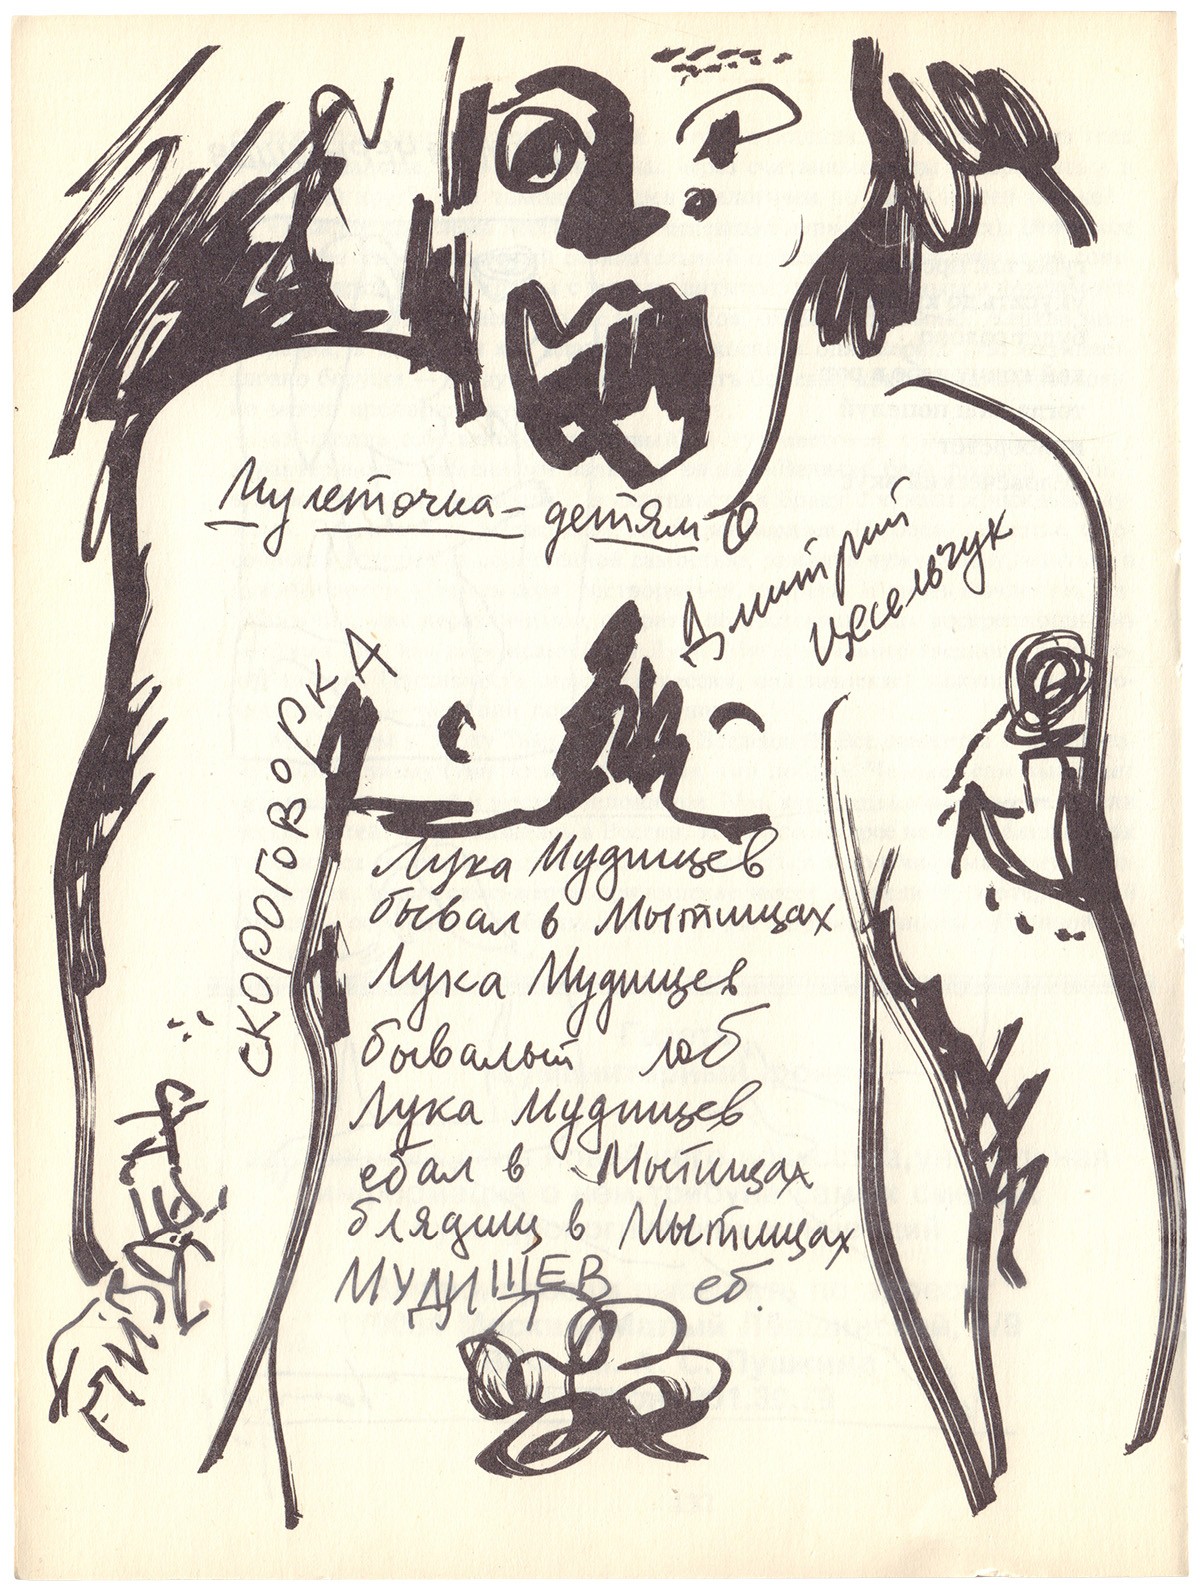 Мулеточка - детям
Дмитрий
Цесельчук
СКОРОГОВОРКА
Лука Мудищев
бывал в Мытищах
Лука Мудищев
бывалый лоб
Лука Мудищев
ебал в Мытищах
блядищ в Мытищах
МУДИЩЕВ еб.